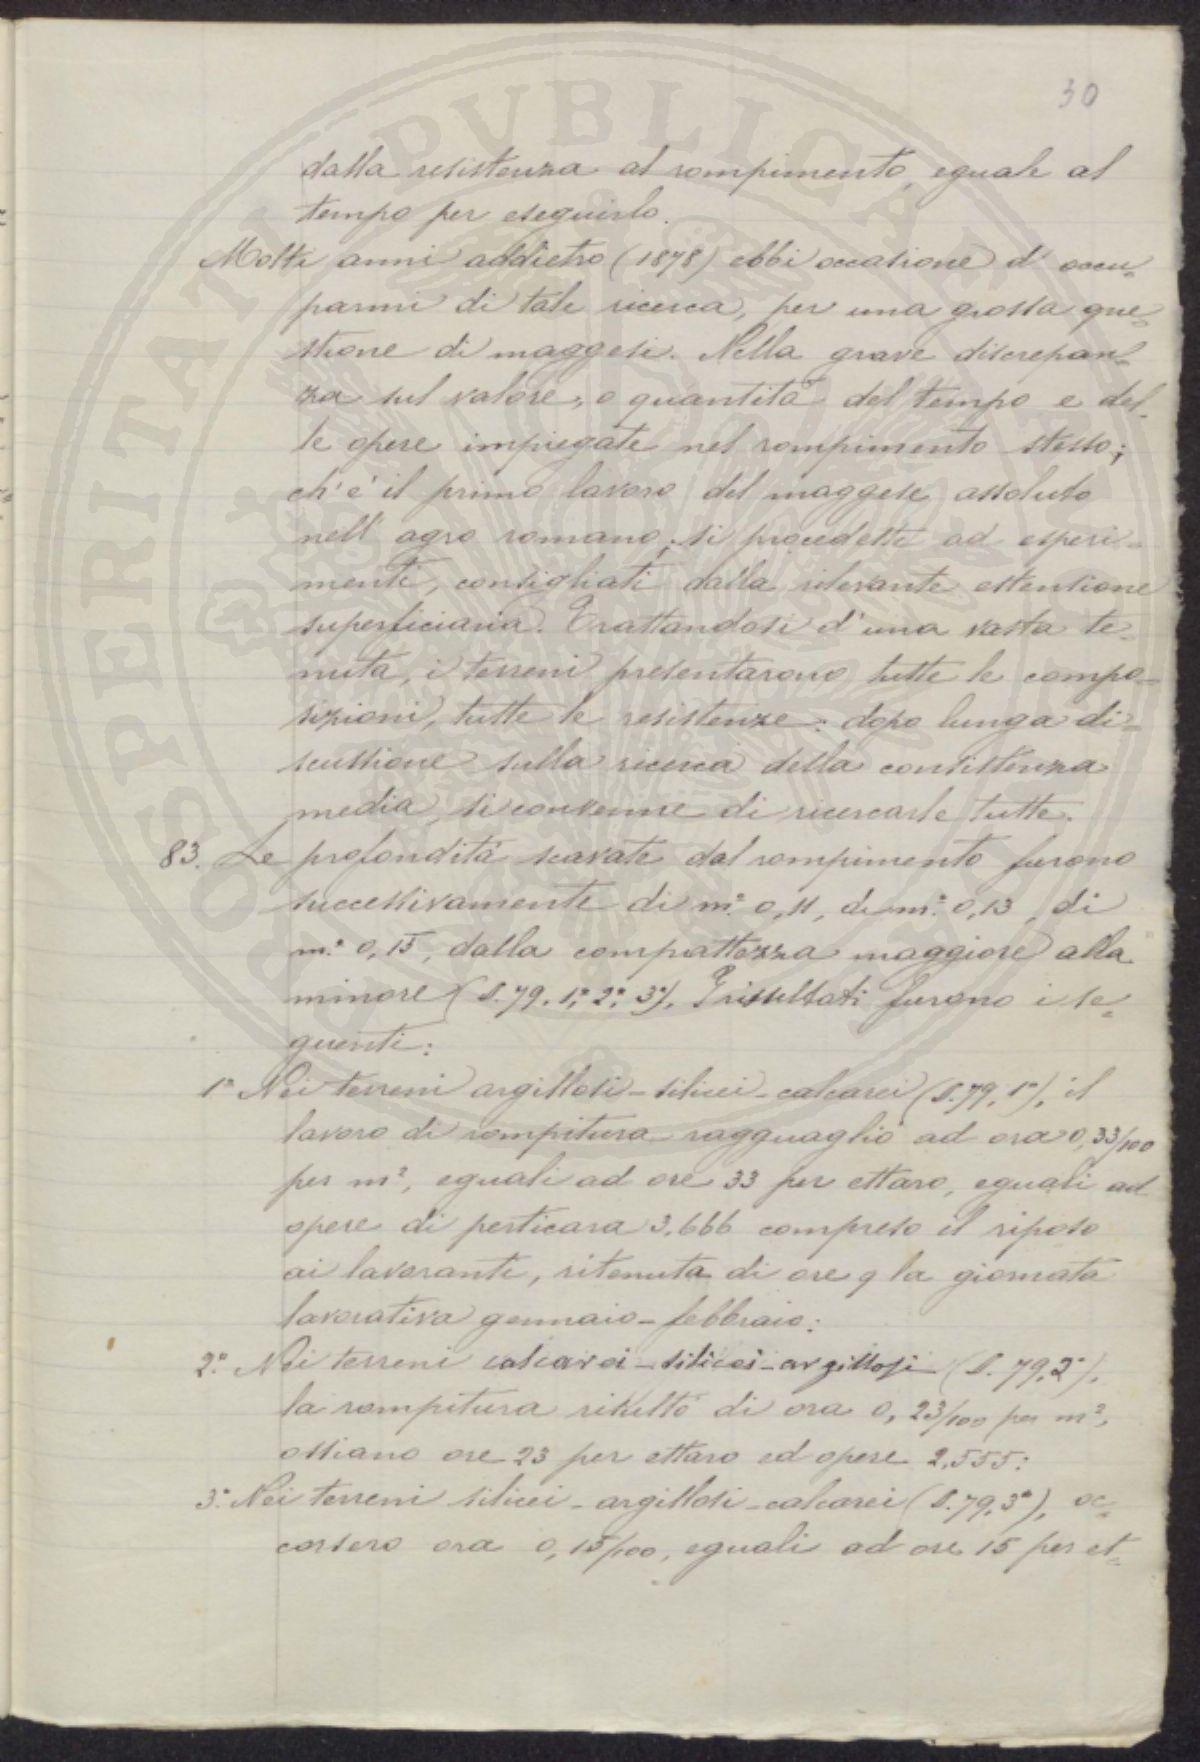 30
dalla resistenza al rompimento, eguale al
tempo per eseguirlo.
Molti anni addietro (1878) ebbi occasione d' occu=
parmi di tale ricerca, per una grossa que=
stione di maggesi. Nella grave discrepan=
za sul valore, o quantità del tempo e del=
le opere impiegate nel rompimento stesso;
ch'è il primo lavoro del maggese assoluto
nell' agro romano; si procedette ad esperi=
menti, consigliati dalla rilevante estensione
superficiaria. Trattandosi d'una vasta te=
nuta, i terreni presentarono tutte le compo=
sizioni, tutte le resistenze: dopo lunga di=
scussione sulla ricerca della consistenza
media, si convenne di ricercarle tutte.
83. Le profondità scavate dal rompimento furono
successivamente di m.º 0,11, di m.º 0,13, di
m.º 0,15, dalla compattezza maggiore alla
minore (S. 79. 1.º 2.º 3º). I risultati furono i se=
guenti:
1º Nei terreni argillosi-silicei-calcarei (S. 79, 1º), il
lavoro di rompitura ragguagliò ad ora 0,33/100
per m², eguali ad ore 33 per ettaro, eguali ad
opere di perticara 3.666 compreso il riposo
ai lavoranti, ritenuta di ore 9 la giornata
lavorativa gennaio-febbraio:
2º. Nei terreni calcarei-silicei-argillosi (S. 79, 2º),
la rompitura risultò di ora 0, 23/100 per m²,
ossiano ore 23 per ettaro ed opere 2,555:
3º. Nei terreni silicei-argillosi-calcarei (S. 79, 3º), oc=
corsero ora 0,15/100, eguali ad ore 15 per et=
PROSPERITATI PUBLICAE